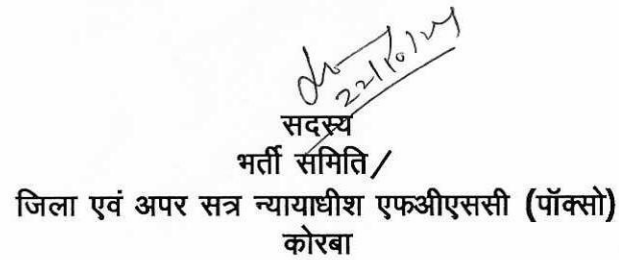 22/10/24
सदस्य
भर्ती समिति/
जिला एवं अपर सत्र न्यायाधीश एफअीएससी (पॉक्सो)
कोरबा